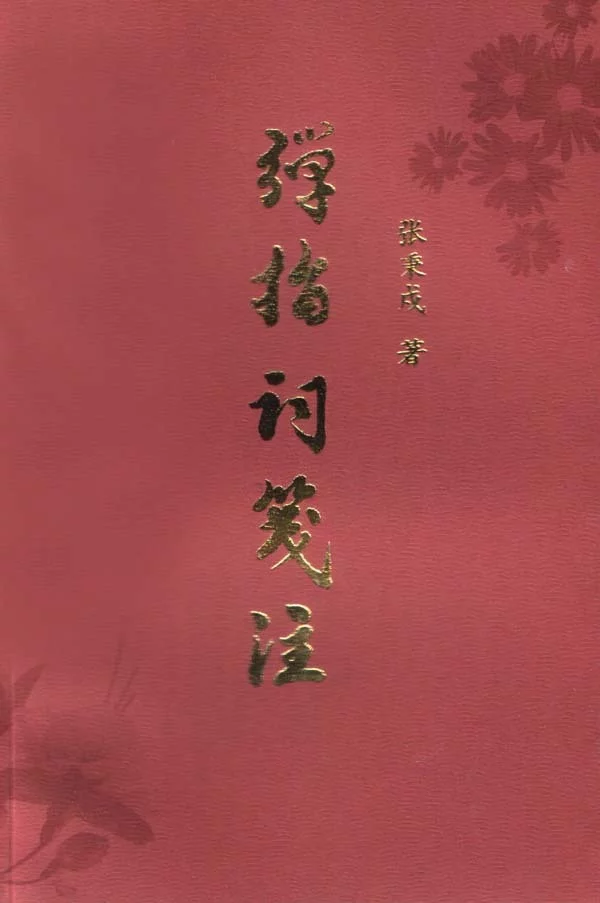 弹指词笺注
张秉戍 著